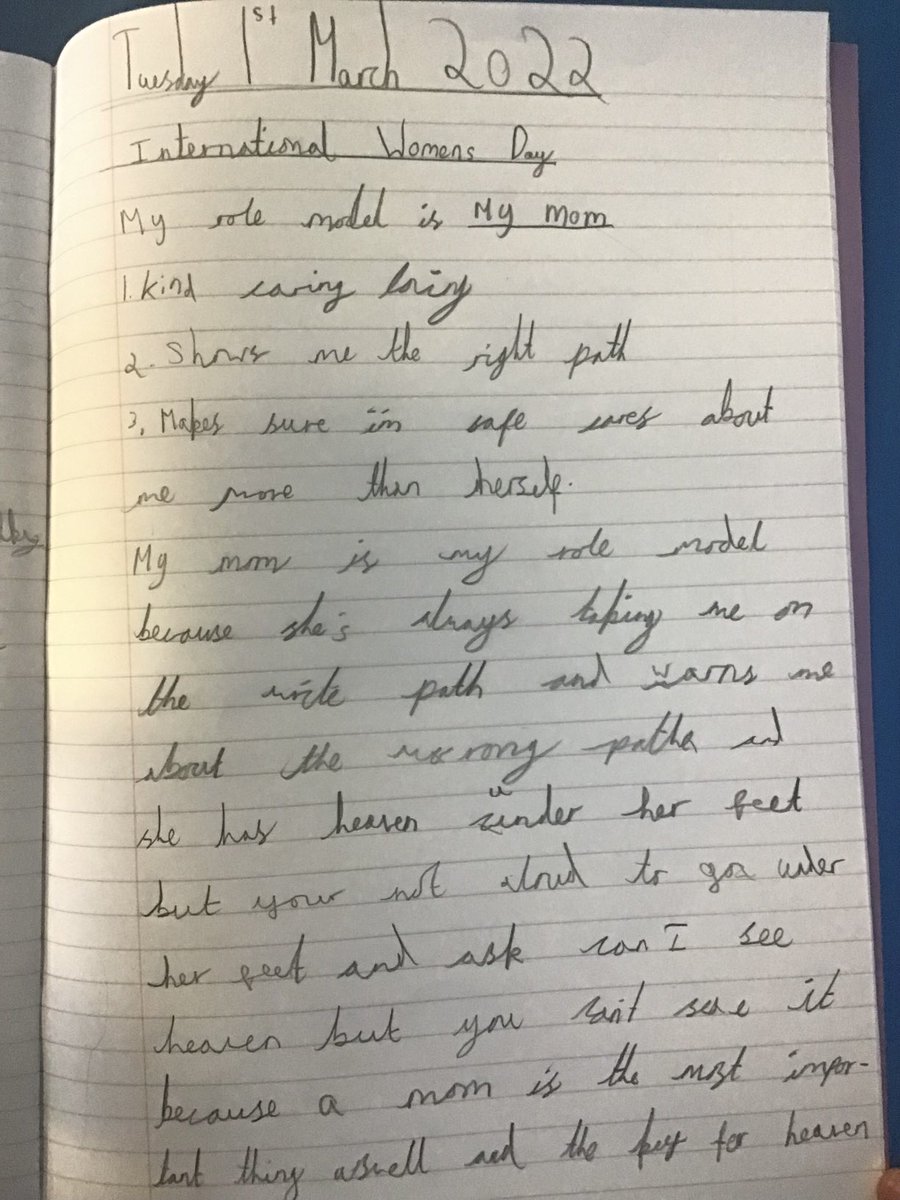 Tuesday 1st March 2022
International Womens Day
My role model is My mom
1. kind caring loving
2. Shows me the right path
3, Makes sure im safe cares about
me more than herself.
My mom is my role model
because she's always taking me on
the path and warns me
about the wrong paths and
she has heaven under her feet
but your not aloud to go under
her feet and ask can I see
heaven but you can't see it
because a mom is the most impor-
tant thing aswell and the key for heaven